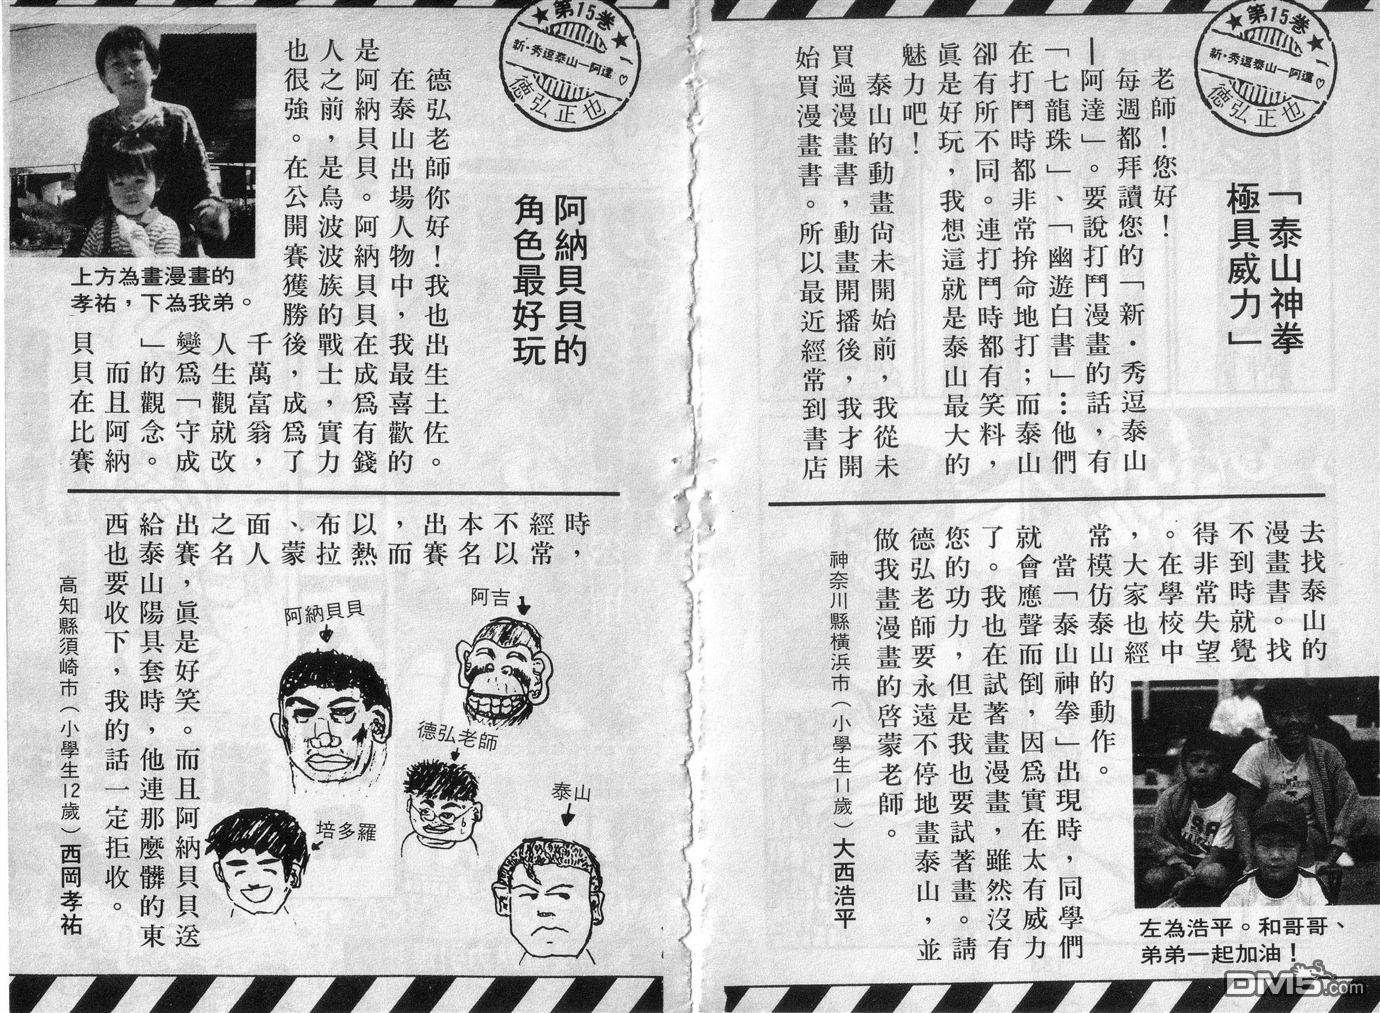 ★第15卷★
新・秀逗泰山—阿達♡
德弘正也
「泰山神拳
極具威力」
老師！您好！
每週都拜讀您的「新・秀逗泰山
—阿達」。要說打鬥漫畫的話，有
「七龍珠」、「幽遊白書」…他們
在打鬥時都非常拚命地打；而泰山
卻有所不同。連打鬥時都有笑料，
眞是好玩，我想這就是泰山最大的
魅力吧！
泰山的動畫尙未開始前，我從未
買過漫畫書，動畫開播後，我才開
始買漫畫書。所以最近經常到書店
去找泰山的
漫畫書。找
不到時就覺
得非常失望
。在學校中
，大家也經
常模仿泰山的動作。
當「泰山神拳」出現時，同學們
就會應聲而倒，因爲實在太有威力
了。我也在試著畫漫畫，雖然沒有
您的功力，但是我也要試著畫。請
德弘老師要永遠不停地畫泰山，並
做我畫漫畫的啓蒙老師。
神奈川縣橫浜市（小學生11歲）大西浩平
左為浩平。和哥哥、
弟弟一起加油！
★第15卷★
新・秀逗泰山—阿達♡
德弘正也
阿納貝貝的
角色最好玩
德弘老師你好！我也出生土佐。
在泰山出場人物中，我最喜歡的
是阿納貝貝。阿納貝貝在成爲有錢
人之前，是烏波波族的戰士，實力
也很強。在公開賽獲勝後，成爲了
千萬富翁，
人生觀就改
變爲「守成
」的觀念。
而且阿納
貝貝在比賽
上方為畫漫畫的
孝祐，下為我弟。
時，
經常
不以
本名
出賽
，而
以熱
布拉
、蒙
面人
之名
出賽，眞是好笑。而且阿納貝貝送
給泰山陽具套時，他連那麼髒的東
西也要收下，我的話一定拒收。
高知縣須崎市（小學生12歲）西岡孝祐
阿吉
阿納貝貝
德弘老師
泰山
培多羅
DM5.com